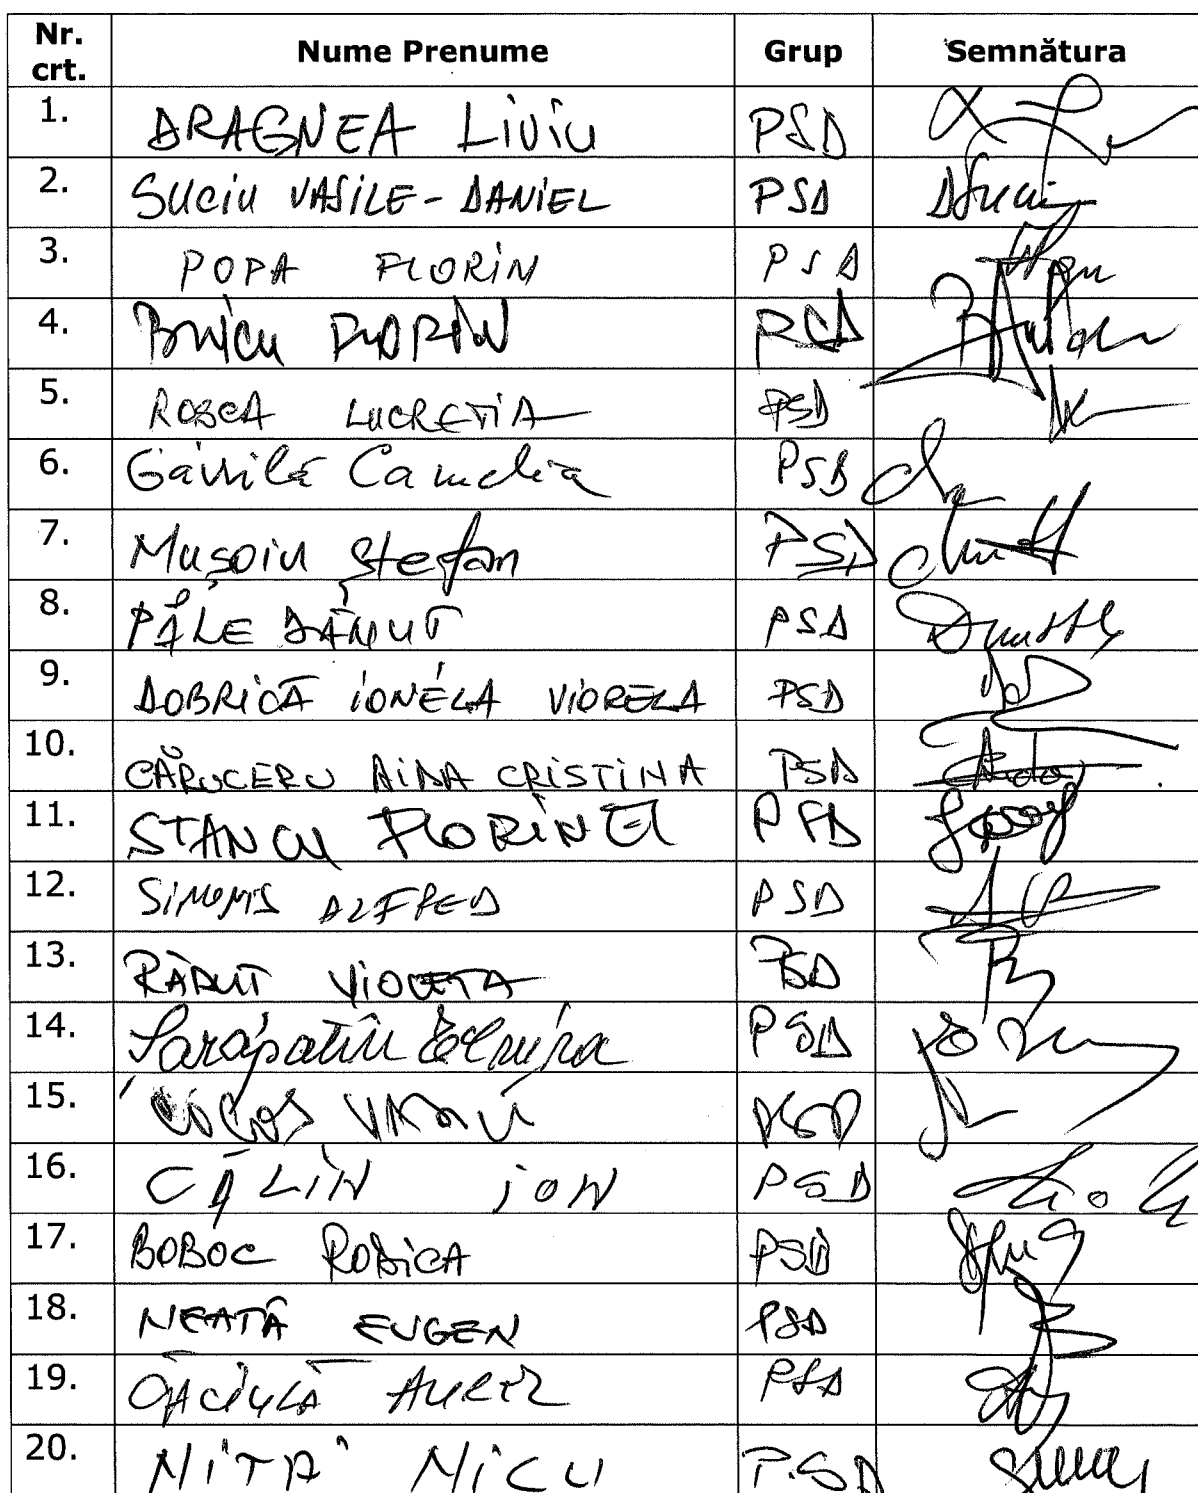 Nr. crt. Nume Prenume Grup Semnătura
1. DRAGNEA LIVIU PSD
2. SUCIU VASILE-DANIEL PSD
3. POPA FLORIN PSD
4. FLORIN PSD
5. ROSCA LUCRETIA PSD
6. Gavrilă Camelia PSD
7. Mușoiu Ștefan PSD
8. PÂLE DĂNUȚ PSD
9. DOBRICĂ IONELA VIORELA PSD
10. CĂRUCERU AIDA CRISTINA PSD
11. STANCU FLORINEL PSD
12. SIMONIS ALFRED PSD
13. RĂDUȚ VIOLETA PSD
14. PSD
15. PSD
16. CĂLIN ION PSD
17. BOBOC RODICA PSD
18. NEAȚĂ EUGEN PSD
19. CĂCIULĂ AUREL PSD
20. NIȚĂ NICU P.S.D